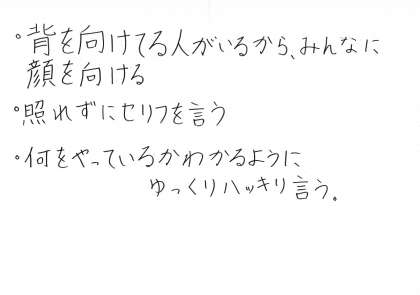 ・背を向けてる人がいるから、みんなに
顔を向ける
・照れずにセリフを言う
・何をやっているかわかるように
ゆっくりハッキリ言う。